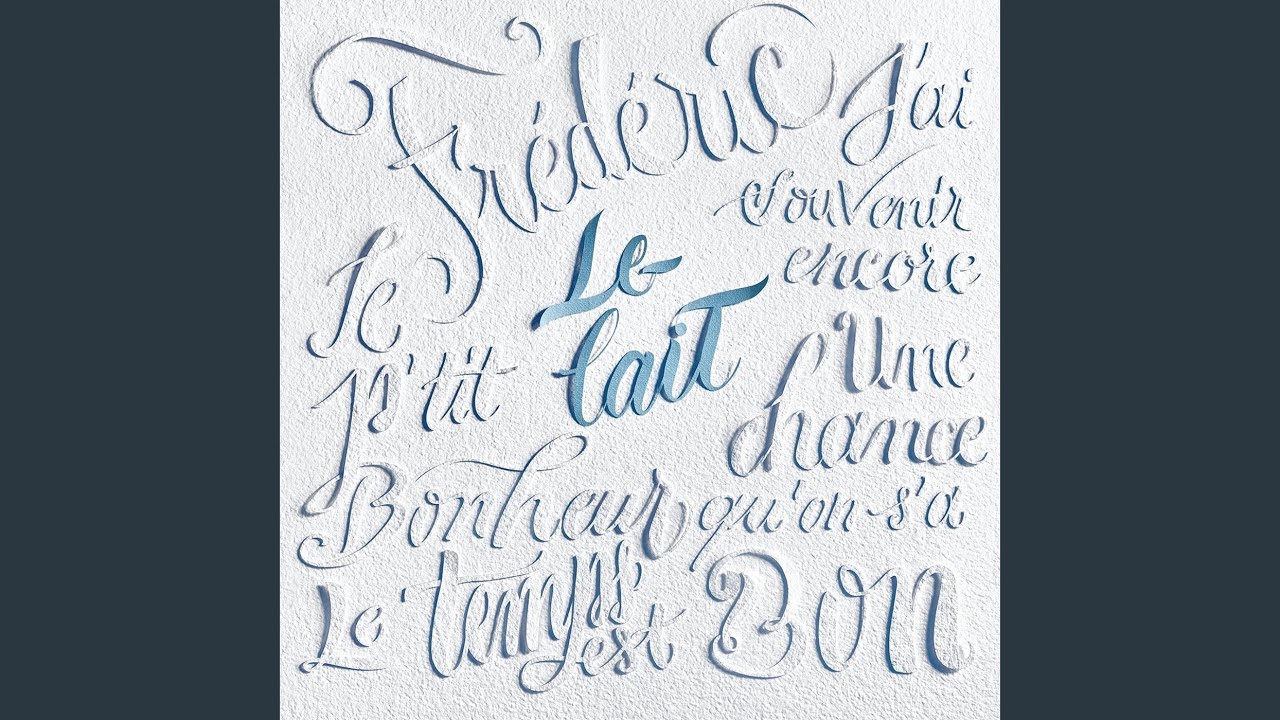 Frédéric
J'ai
souvenir
encore
Le
lait
Le
p'tit
Bonheur
Une
chance
qu'on s'a
Le temps
est
Bon